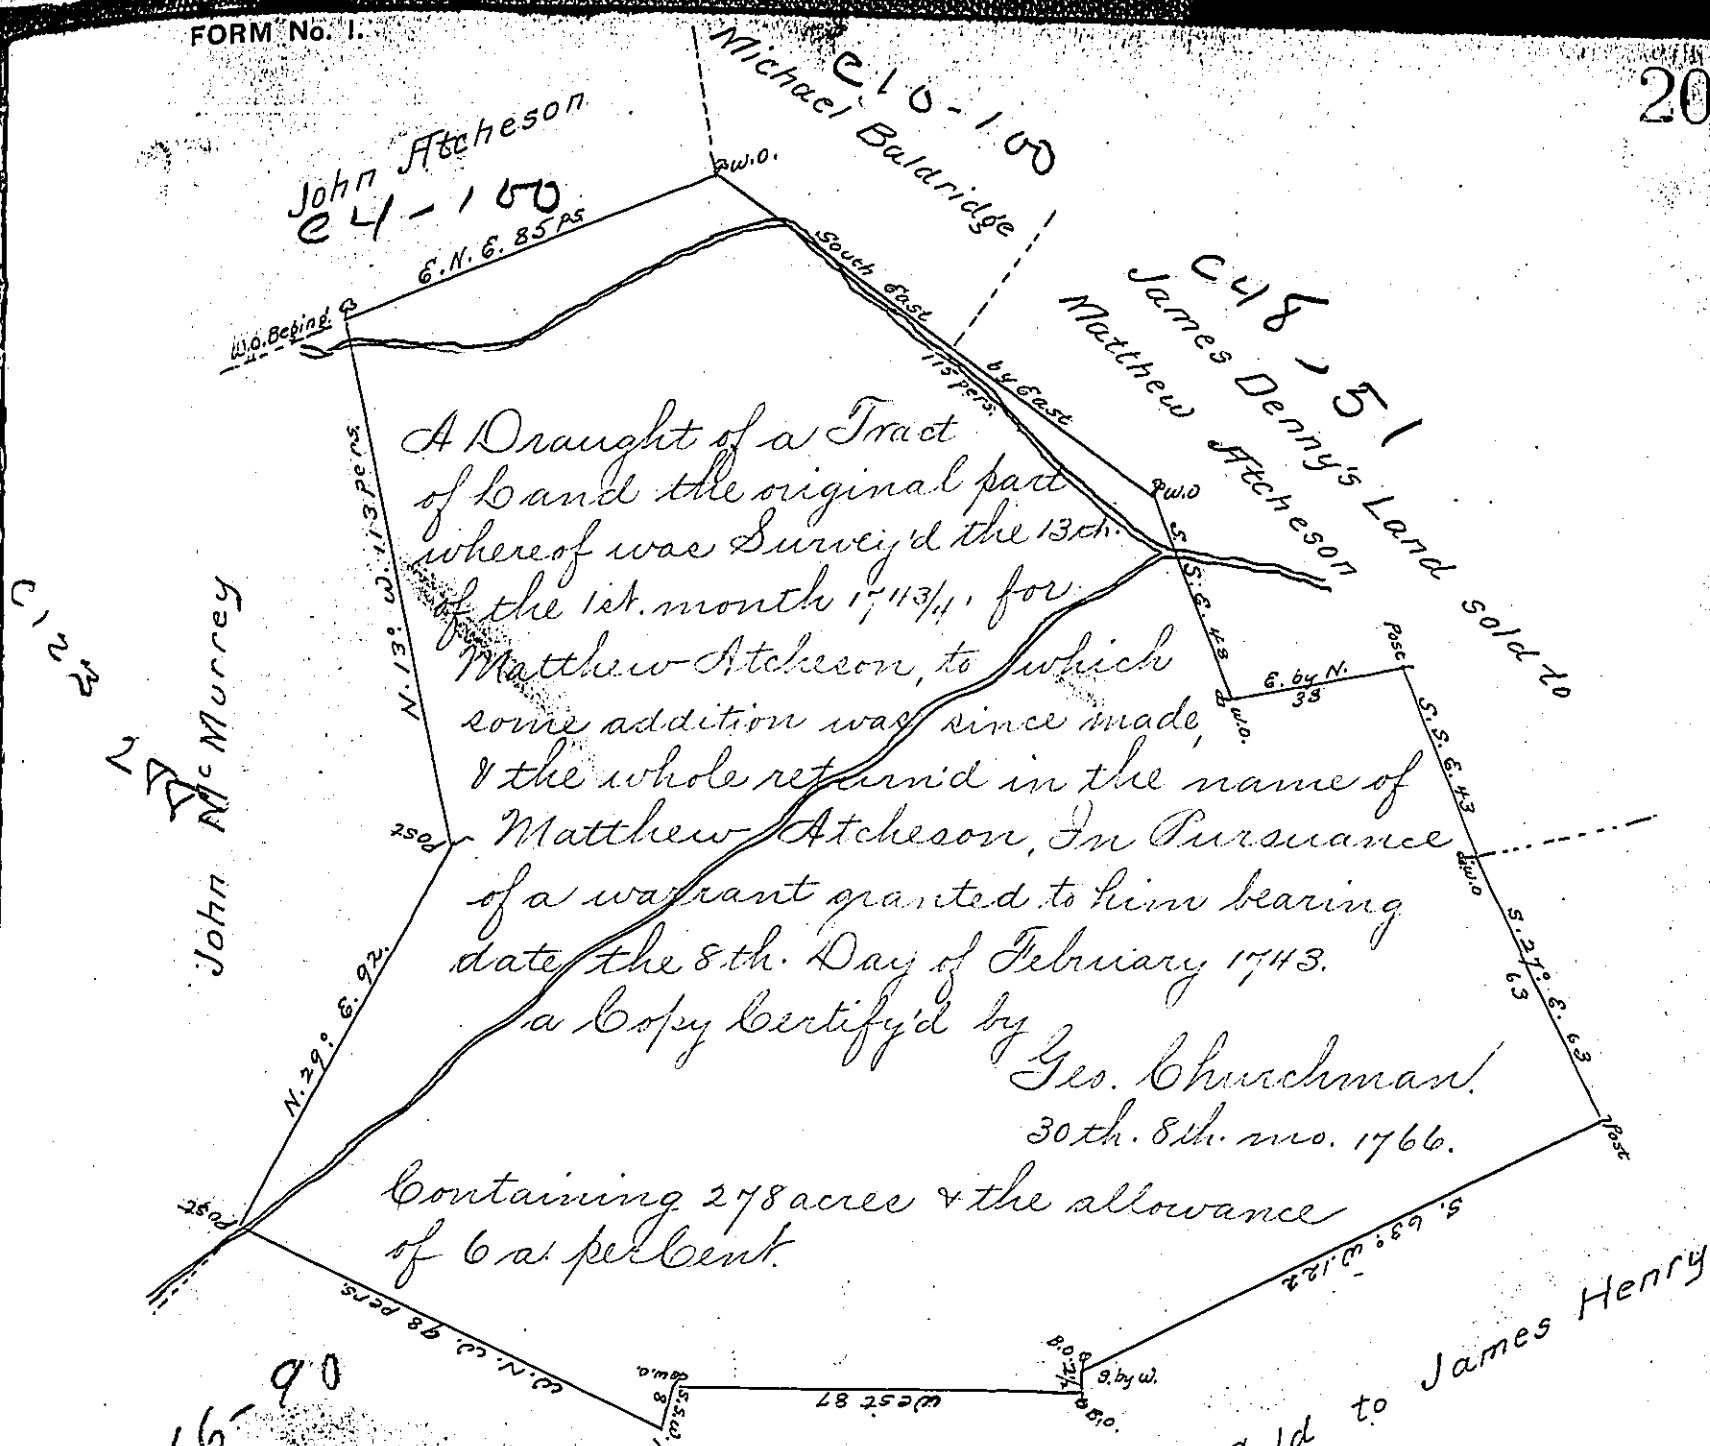 FORM No. 1.
20
John Atcheson
C4-100
Michael Baldridge
C10-100
C48-51
James Denny's Land sold to
Matthew Atcheson
W.O.
E.N.E. 85 ps
W.O. Beging.
South East by East
115 pers.
W.O
S.S.E. 48
W.O.
E. by N.
38
Post
S.S.E. 43
W.O
S. 27° E. 63
63
Post
N. 13° W. 113 pers.
John McMurrey
Post
N. 29° E. 92.
Post
A Draught of a Tract
of Land the original part
whereof was Survey'd the 13th.
of the 1st. month 1743/4. for
Matthew Atcheson, to which
some addition was since made,
& the whole return'd in the name of
Matthew Atcheson, In Pursuance
of a warrant granted to him bearing
date the 8th. Day of February 1743.
a Copy Certify'd by
Geo. Churchman.
30th. 8th. mo. 1766.
Containing 278 acres & the allowance
of 6 a. per Cent.
W.N.W. 98 pers.
W.O.
S.S.W.
8
West 87
B.O.
S. by W.
B.O.
S. 63° W. 122
90
16-
to James Henry